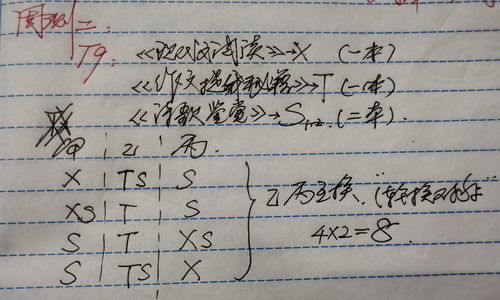 T9:
《现代文阅读》→X (一本)
《作文提升秘籍》→T (一本)
《诗歌鉴赏》→S₁₊₂ (二本).
甲 | 乙 | 丙.
X | TS | S
XS | T | S
S | T | XS
S | TS | X
乙丙互换、"
4×2=8.